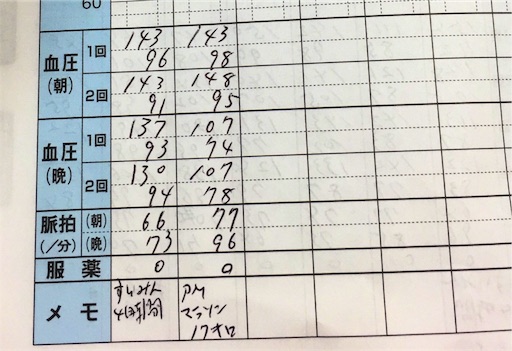 60
血圧 (朝) 1回 143 143
96 98
2回 143 148
91 95
血圧 (晩) 1回 137 107
93 74
2回 130 107
94 78
脈拍 (朝) 66 77
(/分) (晩) 73 96
服薬 0 0
メモ すいみん PM
4時間 マラソン
17キロ